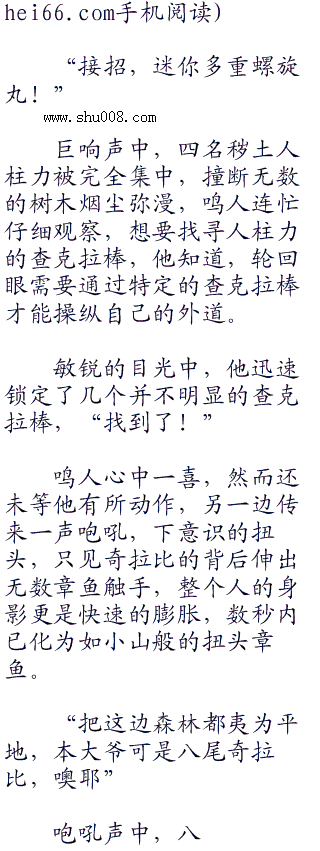 hei66.com手机阅读)
“接招，迷你多重螺旋
丸！”
www.shu008.com
巨响声中，四名秽土人
柱力被完全集中，撞断无数
的树木烟尘弥漫，鸣人连忙
仔细观察，想要找寻人柱力
的查克拉棒，他知道，轮回
眼需要通过特定的查克拉棒
才能操纵自己的外道。
敏锐的目光中，他迅速
锁定了几个并不明显的查克
拉棒，“找到了！”
鸣人心中一喜，然而还
未等他有所动作，另一边传
来一声咆吼，下意识的扭
头，只见奇拉比的背后伸出
无数章鱼触手，整个人的身
影更是快速的膨胀，数秒内
已化为如小山般的扭头章
鱼。
“把这边森林都夷为平
地，本大爷可是八尾奇拉
比，噢耶”
咆吼声中，八